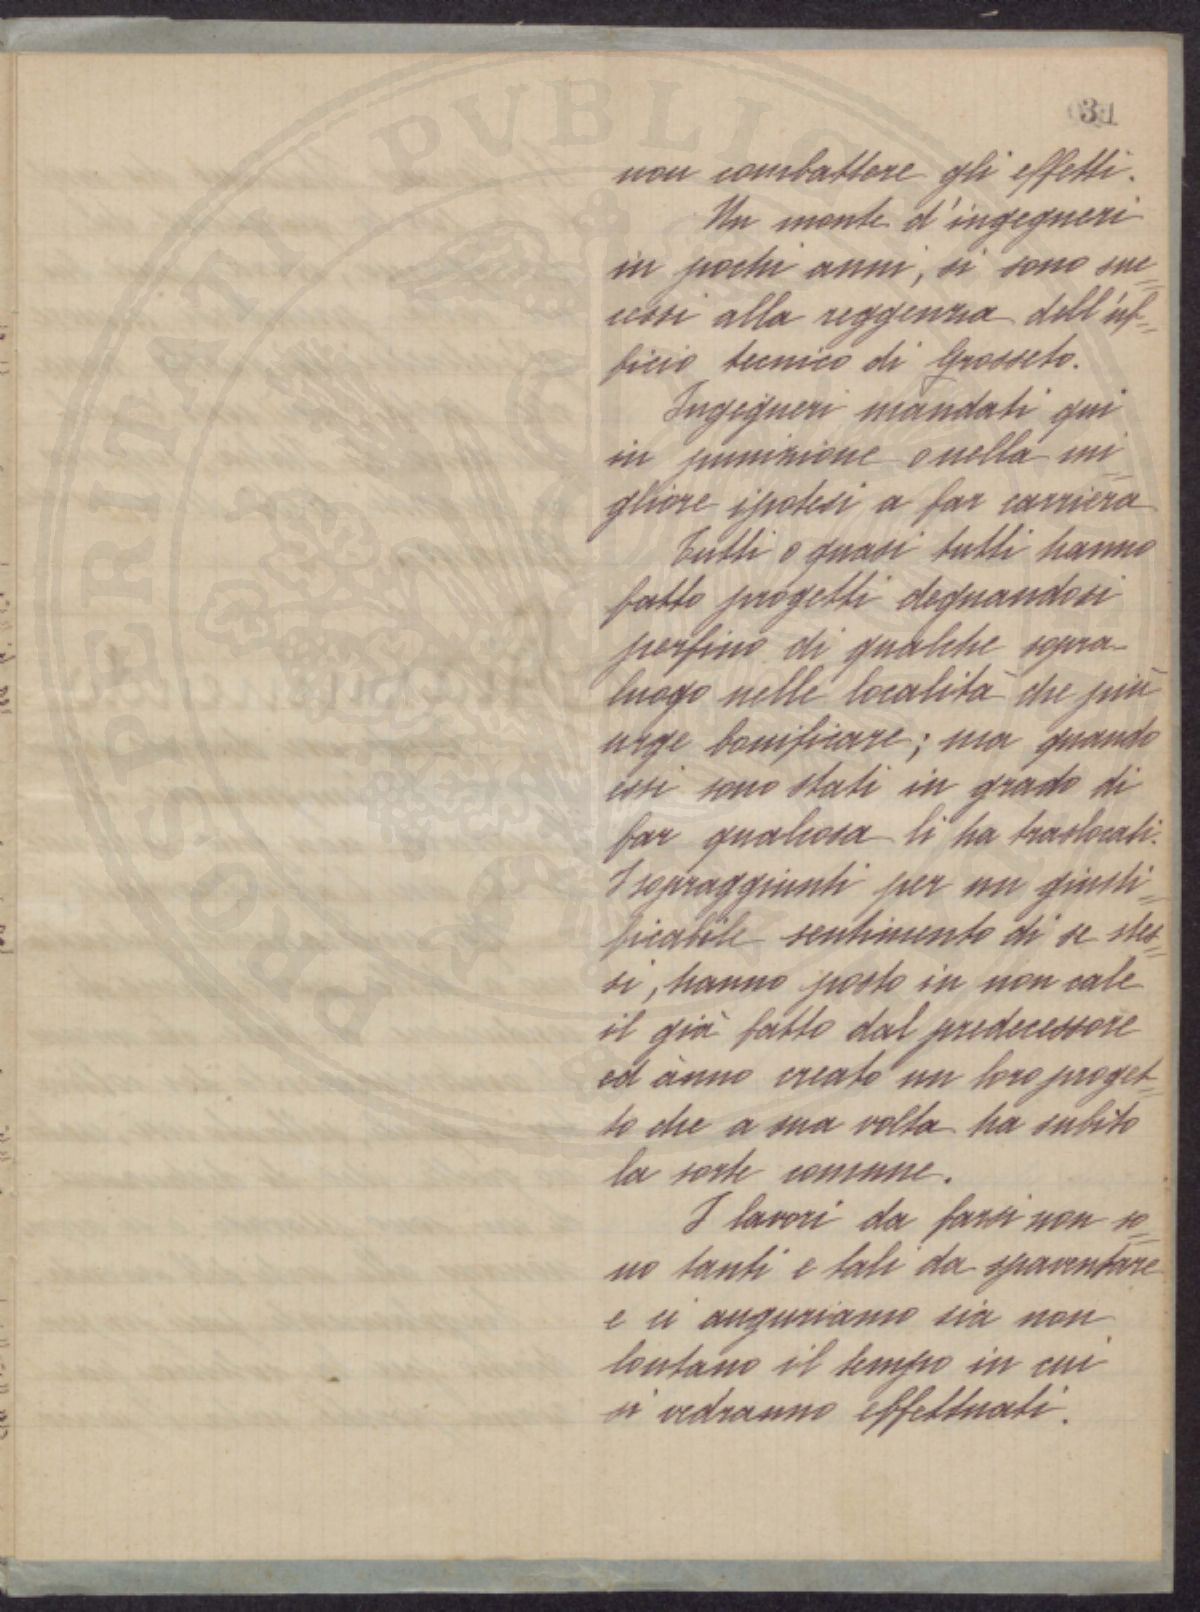 031
non combattere gli effetti.
Un monte d'ingegneri
in pochi anni, si sono suc=
cessi alla reggenza dell'uf=
ficio tecnico di Grosseto.
Ingegneri mandati qui
in punizione o nella mi=
gliore ipotesi a far carriera
Tutti o quasi tutti hanno
fatto progetti degnandosi
perfino di qualche sopra-
luogo nelle località che più
urge bonificare; ma quando
essi sono stati in grado di
far qualcosa li ha traslocati.
I sopraggiunti per un giusti=
ficabile sentimento di se stes=
si, hanno posto in non cale
il già fatto dal predecessore
ed ànno creato un loro proget=
to che a sua volta ha subito
la sorte comune.
I lavori da farsi non so=
no tanti e tali da spaventare
e ci auguriamo sia non
lontano il tempo in cui
si vedranno effettuati.
PROSPERITATI PUBLICAE